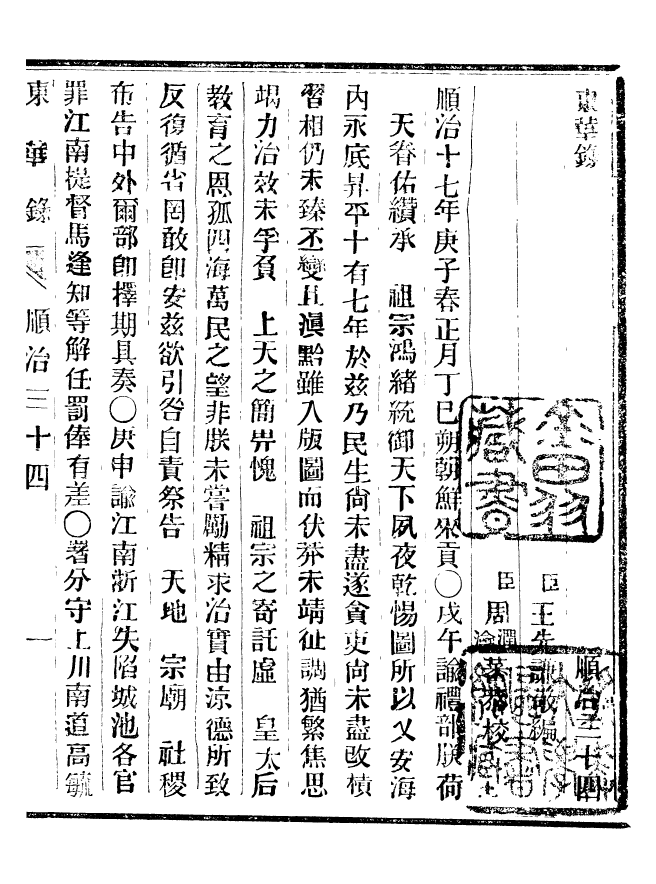 東華錄
順治三十四
臣王先謙敬編
臣周潤蕃瀹蕃校
順治十七年庚子春正月丁巳朔朝鮮來貢〇戊午諭禮部朕荷
天眷佑纘承　祖宗鴻緒統御天下夙夜乾惕圖所以乂安海
內永底昇平十有七年於茲乃民生尚未盡遂貪吏尚未盡改積
習相仍未臻丕變且滇黔雖入版圖而伏莽未靖征調猶繁焦思
竭力治效未孚負　上天之簡畀愧　祖宗之寄託虛　皇太后
教育之恩孤四海萬民之望非朕未嘗勵精求治實由涼德所致
反復循省罔敢卽安茲欲引咎自責祭告　天地　宗廟　社稷
布告中外爾部卽擇期具奏〇庚申諭江南浙江失陷城池各官
罪江南提督馬逢知等解任罰俸有差〇著分守上川南道高毓
東華錄　順治三十四　一